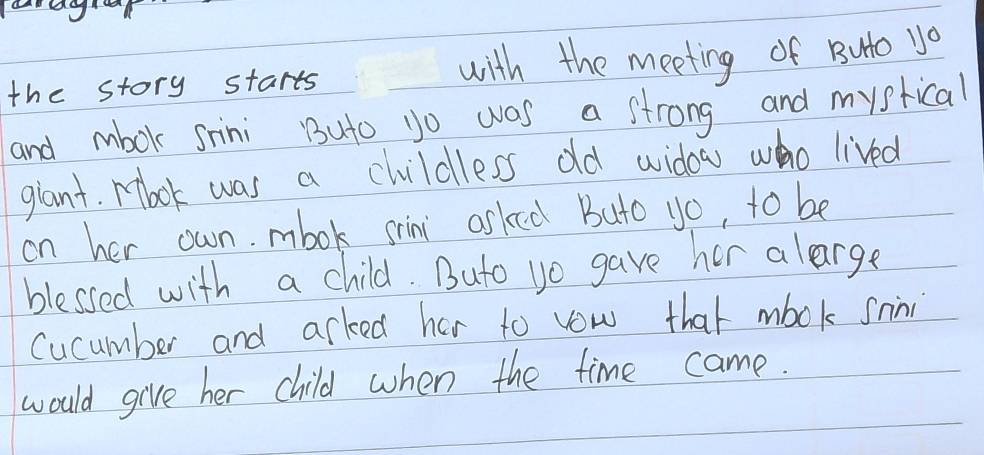 Paragraph
the story starts with the meeting of Buto ijo
and mbok srini Buto ijo was a strong and mystical
giant. Mbok was a childless old widow who lived
on her own. mbok srini asked Buto ijo, to be
blessed with a child. Buto ijo gave her a large
Cucumber and asked her to vow that mbok srini
would give her child when the time came.